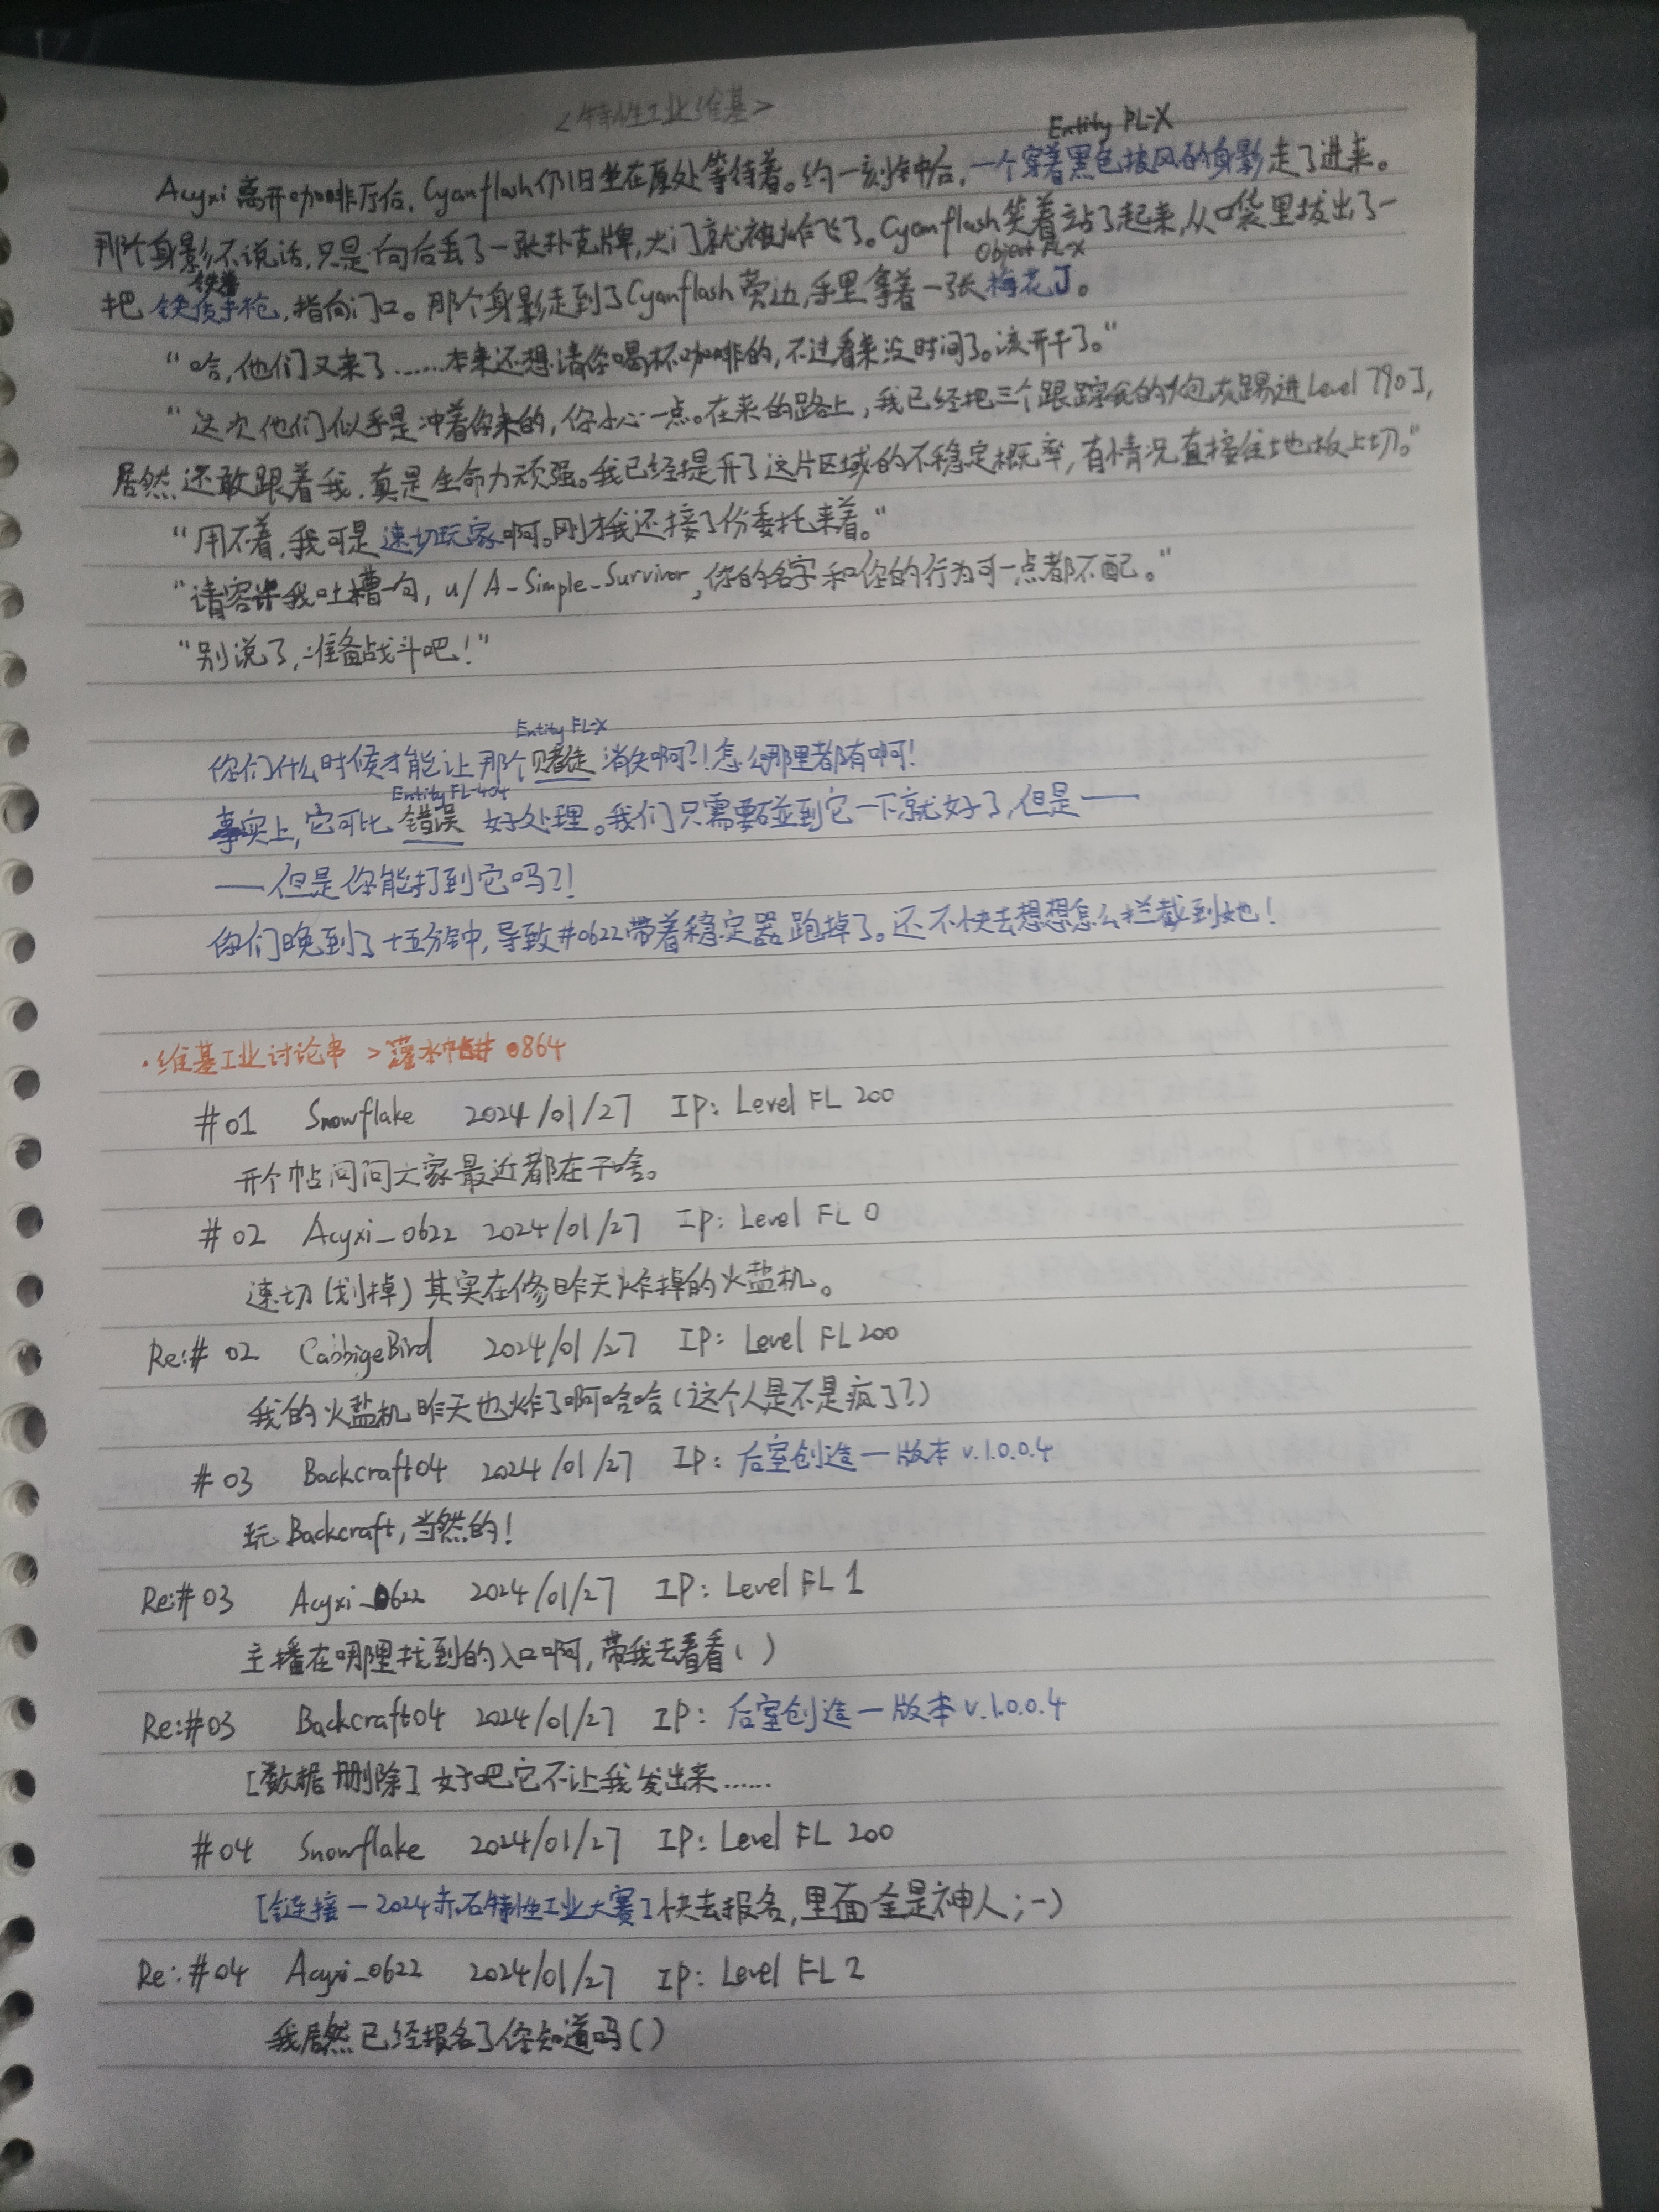 <特性工业维基>
Entity PL-X
Acyxi离开咖啡厅后,Cyanflash仍旧坐在原处等待着。约一刻钟后,一个穿着黑色披风的身影走了进来。
那个身影不说话,只是向后丢了一张扑克牌,大门就被炸飞了。Cyanflash笑着站了起来,从口袋里拔出了一
Object PL-X
把 手枪,指向门口。那个身影走到了Cyanflash旁边,手里拿着一张梅花J。
“哈,他们又来了……本来还想请你喝杯咖啡的,不过看来没时间了。该开干了。”
“这次他们似乎是冲着你来的,你小心一点。在来的路上,我已经把三个跟踪我的炮灰踢进Level 790了,
居然还敢跟着我,真是生命力顽强。我已经提升了这片区域的不稳定概率,有情况直接往地板上切。”
“用不着,我可是速切玩家啊。刚才我还接了份委托来着。”
“请容许我吐槽一句,u/A-Simple-Survivor,你的名字和你的行为可一点都不配。”
“别说了,准备战斗吧!”
Entity FL-X
你们什么时候才能让那个赌徒消失啊?!怎么哪里都有啊!
Entity FL-404
事实上,它可比错误好处理。我们只需要碰到它一下就好了,但是——
——但是你能打到它吗?!
你们晚到了十五分钟,导致#0622带着稳定器跑掉了。还不快去想想怎么拦截到她!
·维基工业讨论串 > 灌水帖#0864
#01 Snowflake 2024/01/27 IP: Level FL 200
开个帖问问大家最近都在干啥。
#02 Acyxi_0622 2024/01/27 IP: Level FL 0
速切(划掉)其实在修昨天炸掉的火盐机。
Re:#02 CabbigeBird 2024/01/27 IP: Level FL 200
我的火盐机昨天也炸了啊哈哈(这个人是不是疯了?)
#03 Backcraft04 2024/01/27 IP: 后室创造—版本v.1.0.0.4
玩Backcraft,当然的!
Re:#03 Acyxi_0622 2024/01/27 IP: Level FL 1
主播在哪里找到的入口啊,带我去看看()
Re:#03 Backcraft04 2024/01/27 IP: 后室创造—版本v.1.0.0.4
[数据删除]好吧它不让我发出来……
#04 Snowflake 2024/01/27 IP: Level FL 200
[链接—2024赤石特性工业大赛]快去报名,里面全是神人;-)
Re:#04 Acyxi_0622 2024/01/27 IP: Level FL 2
我居然已经报名了你知道吗()